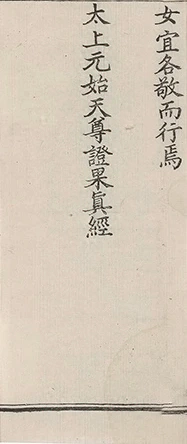 女宜各敬而行焉
太上元始天尊證果眞經